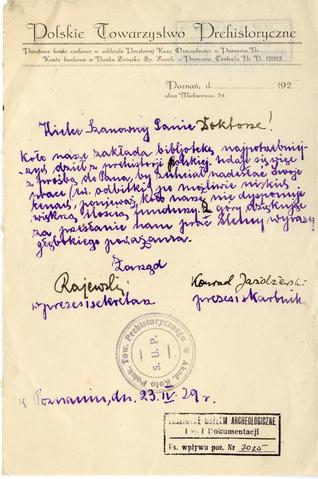 Polskie Towarzystwo Prehistoryczne
Pocztowe konto czekowe w oddziale Pocztowej Kasy Oszczędności w Poznaniu Nr.
Konto bankowe w Banku Związku Sp. Zarob. w Poznaniu, Centrala Nr. D. 10003
Poznań, d. 192
ulica Mickiewicza 34
Wielce Szanowny Panie Doktorze!
Koło nasze zakłada bibljotekę najpotrzebniej-
szych dzieł z prehistorji polskiej, udaje się więc
z prośbą do Pana, by zechciał nadesłać swoje
prace (ew. odbitki) po możliwie niskich
cenach, ponieważ koło nasze nie dysponuje
większą ilością funduszy. Z góry dziękując
za przesłanie nam prac ślemy wyrazy
głębokiego poważania.
Zarząd
Rajewski Konrad Jażdżewski
wiceprezes i sekretarz prezes i skarbnik
Akad. Koło Polsk. Tow. Prehistorycznego
S. U. P.
w Poznaniu, dn. 23.IV.29 r.
PAŃSTWOWE MUZEUM ARCHEOLOGICZNE
Dział Dokumentacji
Ks. wpływu poz. Nr 7025